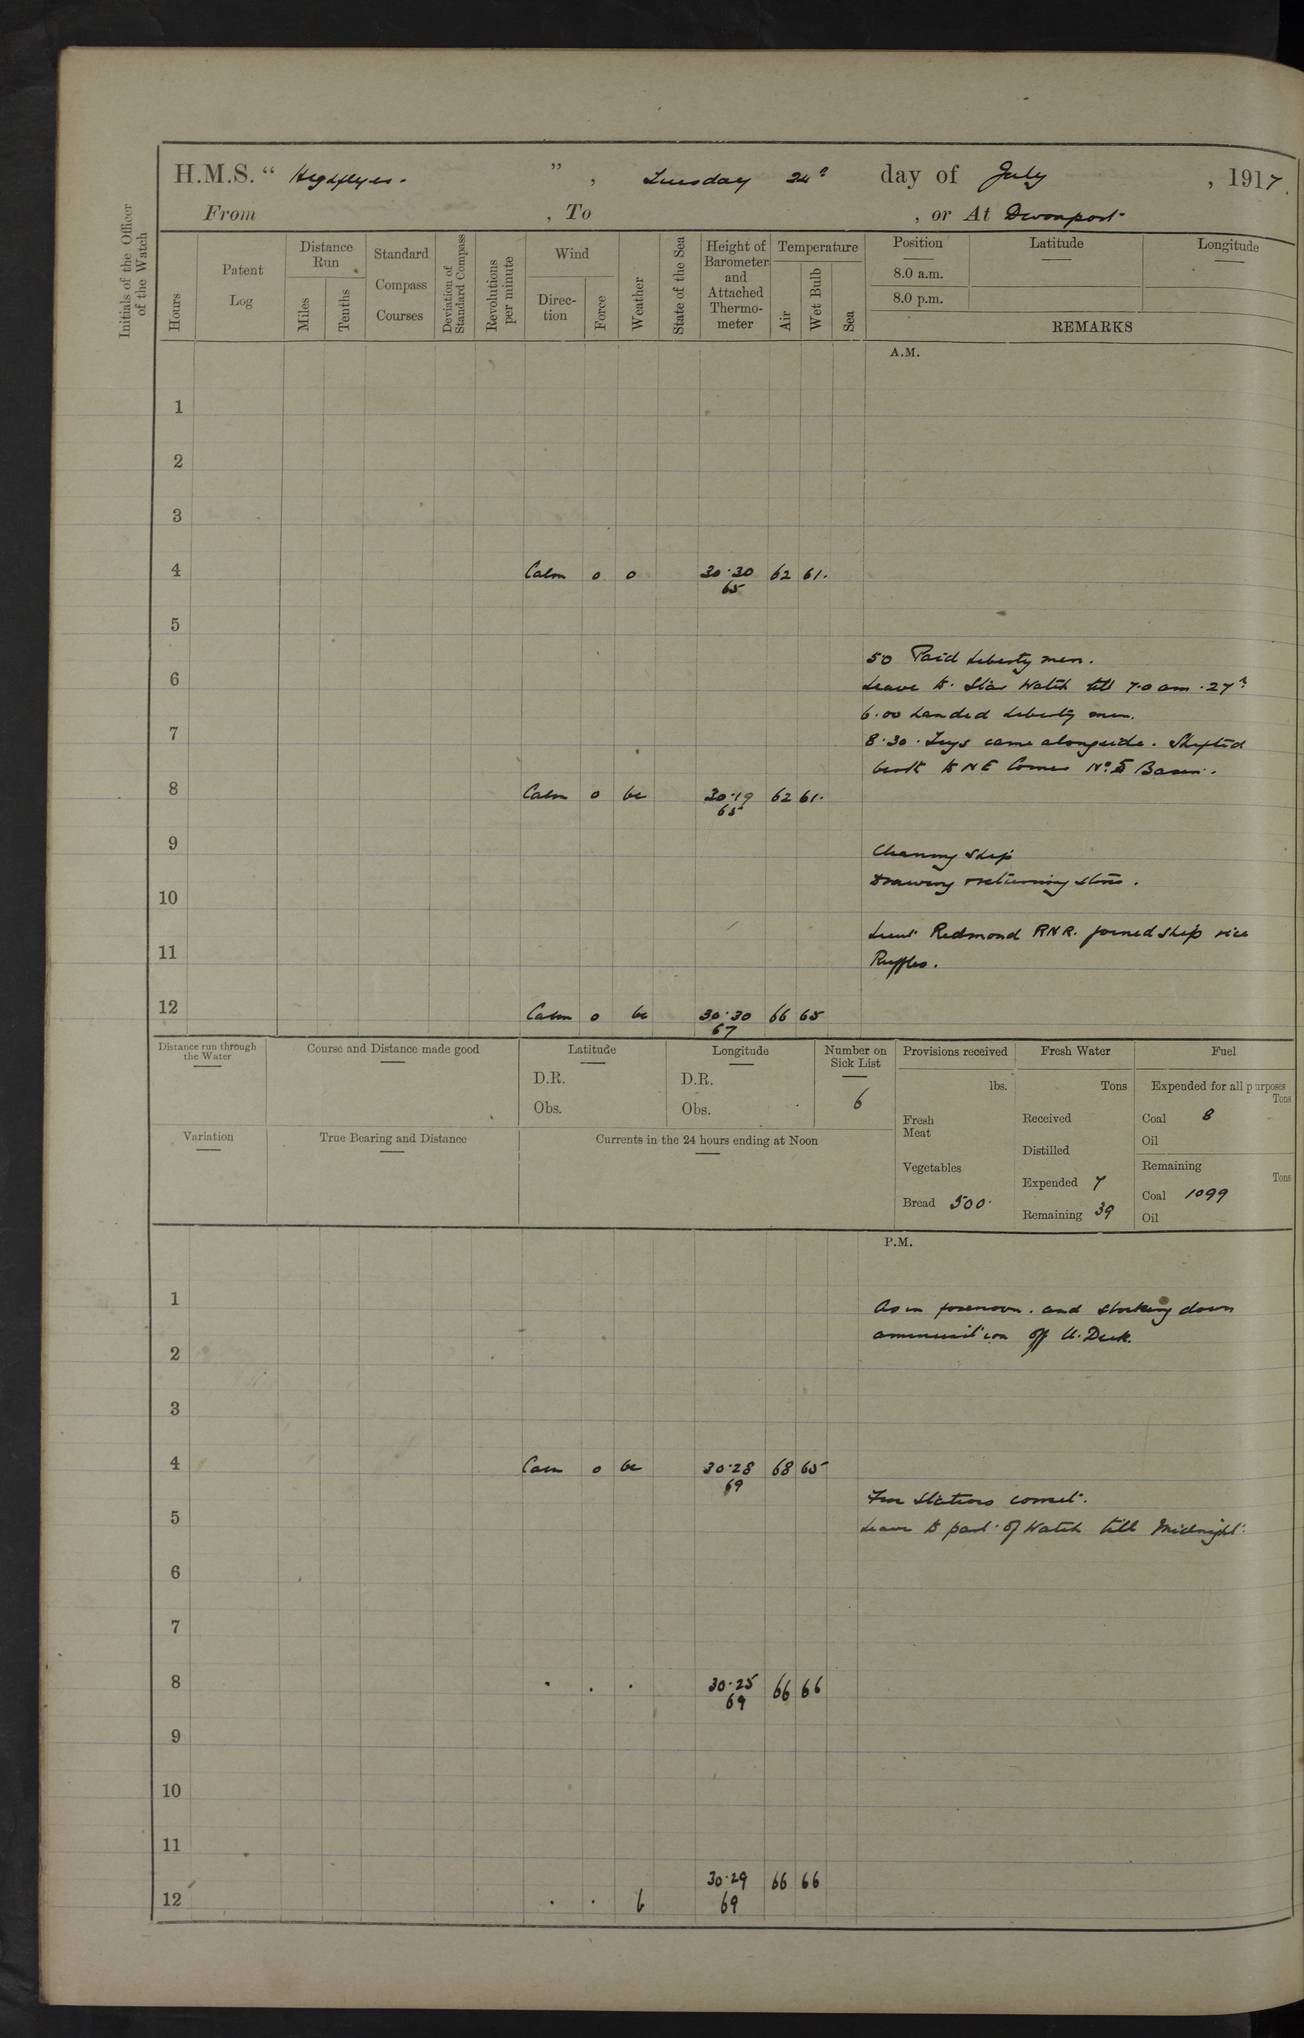 H.M.S. " Highflyer. " , Tuesday 24th day of July , 1917.
From , To , or At Devonport
Initials of the Officer of the Watch
Hours
Patent Log
Distance Run
Miles
Tenths
Standard Compass Courses
Deviation of Standard Compass
Revolutions per minute
Wind
Direc-tion
Force
Weather
State of the Sea
Height of Barometer and Attached Thermo-meter
Temperature
Air
Wet Bulb
Sea
Position
Latitude
Longitude
8.0 a.m.
8.0 p.m.
REMARKS
A.M.
1
2
3
4 Calm 0 o 30.30 62 61.
65
5
50 Paid Liberty men.
6 Leave to Star Watch till 7.0 am. 27th
6.00 Landed Liberty men.
7 8.30. Tugs came alongside. Shifted
berth to NE Corner No. 5 Basin.
8 Calm 0 bc 30.19 62 61.
65
9 Cleaning Ship
Drawing & returning stores.
10
Lieut Redmond RNR. joined ship vice
11 Ruffles.
12 Calm 0 bc 30.30 66 65
67
Distance run through the Water
Course and Distance made good
Latitude
D.R.
Obs.
Longitude
D.R.
Obs.
Number on Sick List
6
Provisions received
lbs.
Fresh Meat
Vegetables
Bread 500.
Fresh Water
Tons
Received
Distilled
Expended 7
Remaining 39
Fuel
Expended for all purposes
Tons
Coal 8
Oil
Remaining
Tons
Coal 1099
Oil
Variation
True Bearing and Distance
Currents in the 24 hours ending at Noon
P.M.
1 As in forenoon. and striking down
ammunition off U. Deck.
2
3
4 Calm 0 bc 30.28 68 65
69
Fire Stations correct.
5 Leave to part of Watch till Midnight.
6
7
8 . . . 30.25 66 66
69
9
10
11
30.29 66 66
12 . . b 69